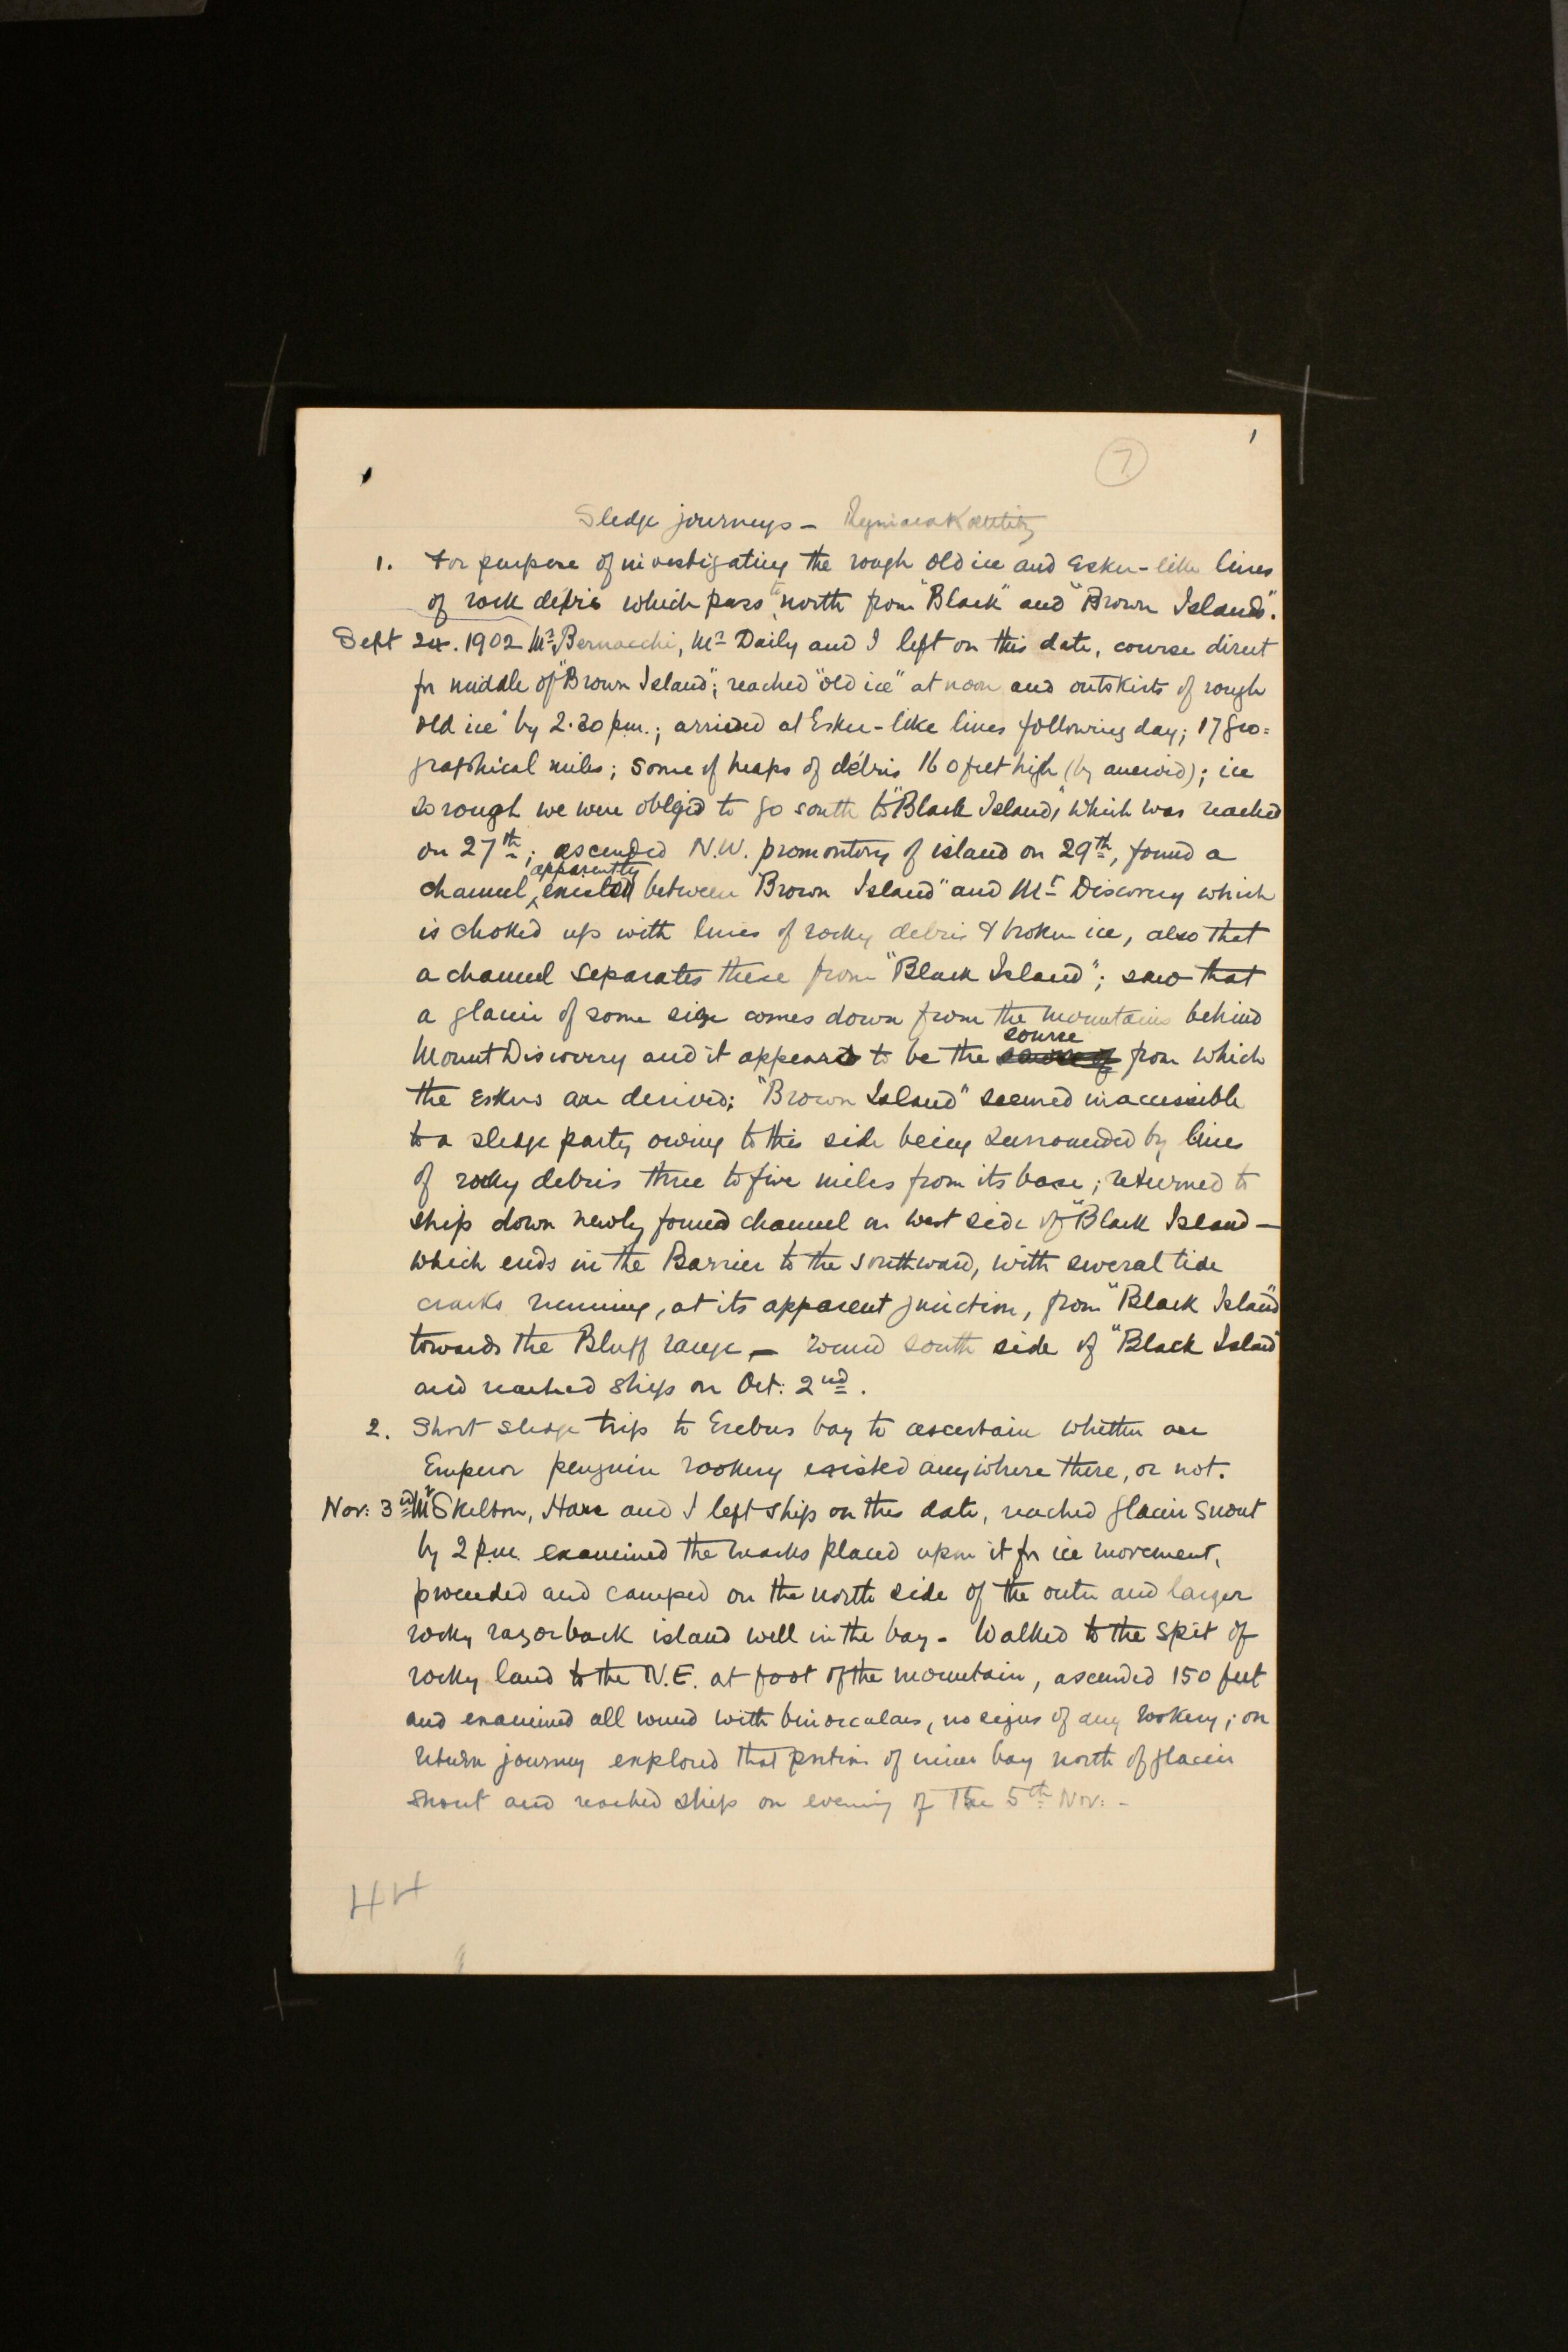 1
7
Sledge journeys — Reginald Koettlitz
1. For purpose of investigating the rough old ice and Esker-like lines
of rock debris which pass to north from "Black" and "Brown Islands".
Sept 24. 1902 Mr Bernacchi, Mr Daily and I left on this date, course direct
for middle of "Brown Island"; reached "old ice" at noon and outskirts of rough
"old ice" by 2.30 p.m.; arrived at Esker-like lines following day; 17 geo=
graphical miles; some of heaps of débris 160 feet high (by aneroid); ice
so rough we were obliged to go south to "Black Island," which was reached
on 27th; ascended N.W. promontory of island on 29th, found a
channel, apparently existed between "Brown Island" and Mt Discovery which
is choked up with lines of rocky debris & broken ice, also that
a channel separates these from "Black Island"; saw that
a glacier of some size comes down from the mountains behind
Mount Discovery and it appeared to be the source from which
the Eskers are derived; "Brown Island" seemed inaccessible
to a sledge party owing to this side being surrounded by lines
of rocky debris three to five miles from its base; returned to
ship down newly found channel on west side of "Black Island —
which ends in the Barrier to the southward, with several tide
cracks running, at its apparent junction, from "Black Island"
towards the Bluff range, — round south side of "Black Island"
and reached ship on Oct: 2nd.
2. Short sledge trip to Erebus bay to ascertain whether an
Emperor penguin rookery existed anywhere there, or not.
Nov: 3rd Mr Skelton, Hare and I left ship on this date, reached glacier snout
by 2 p.m. examined the marks placed upon it for ice movement,
proceeded and camped on the north side of the outer and larger
rocky razorback island well in the bay - Walked to the spit of
rocky land to the N.E. at foot of the mountain, ascended 150 feet
and examined all round with binoculars, no signs of any rookery; on
return journey explored that portion of inner bay north of glacier
snout and reached ship on evening of the 5th Nov: -
44